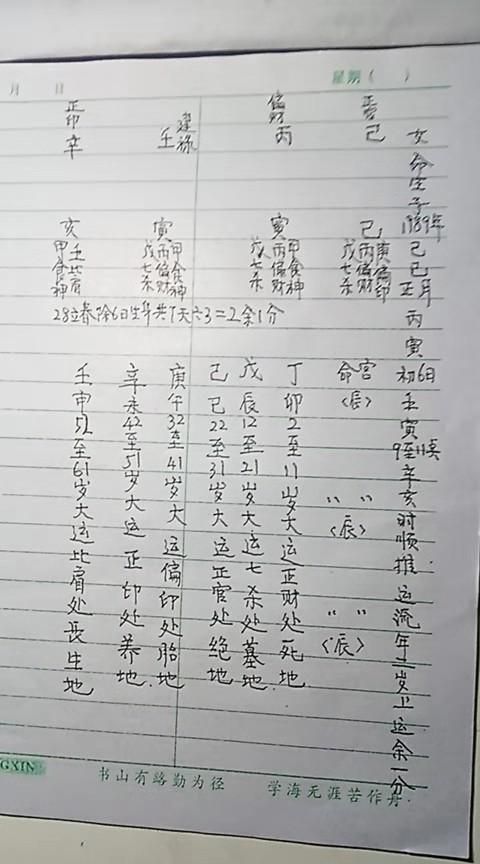 月 日
星期( )
女命生于1989年己巳正月丙寅初6日壬寅9至11点辛亥时顺推运流年二岁上运余一分
正官
己
己
庚丙戊
偏印
偏财
七杀
偏财
丙
寅
甲丙戊
食神
偏财
七杀
建禄
壬
寅
甲丙戊
食神
偏财
七杀
正印
辛
亥
壬甲
比肩
食神
28立春除6日生年共7天六3=2余1分
命宫
〈辰〉
〃 〃
〈辰〉
〃 〃
〈辰〉
丁卯2至11岁大运正财处死地.
戊辰12至21岁大运七杀处墓地.
己巳22至31岁大运正官处绝地
庚午32至41岁大运偏印处胎地
辛未42至51岁大运正印处养地.
壬申52至61岁大运比肩处长生地
GXIN
书山有路勤为径 学海无涯苦作舟